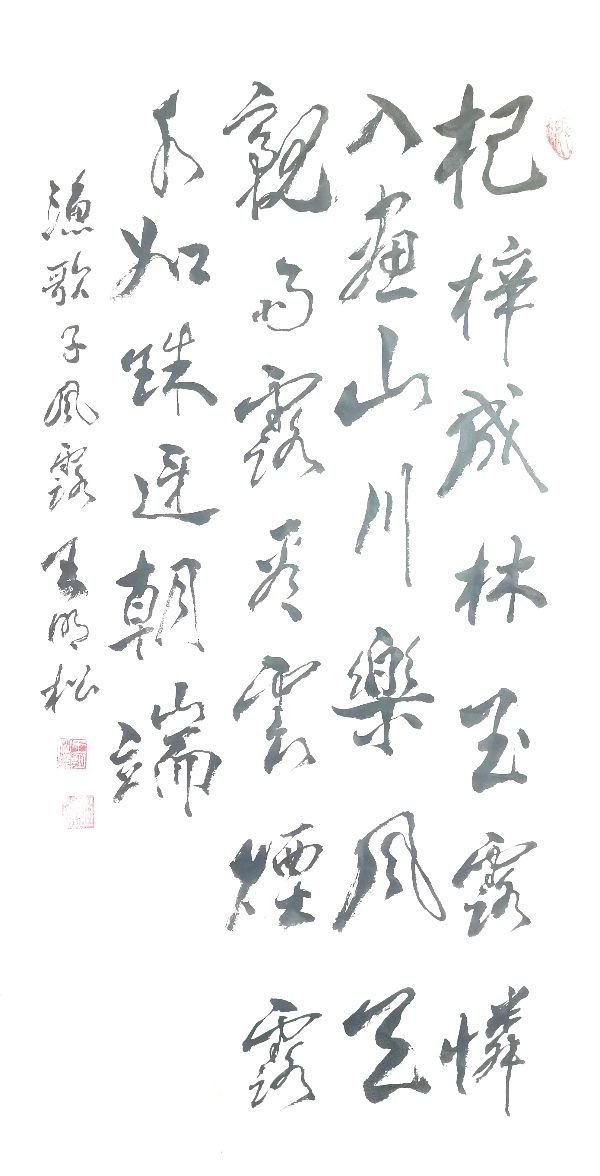 杞梓成林玉露憐
入畫山川樂風天
觀雨露看雲煙露
水如珠迓朝端
漁歌子風露 王明松